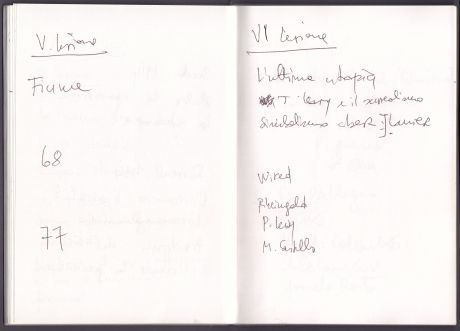 V. Lezione
Fiume
68
77
VI Lezione
L'ultima utopia
T. Leary e il surrealismo
simbolismo cyber: J Lanier
Wired
Rheingold
P. Levy
M. Castells